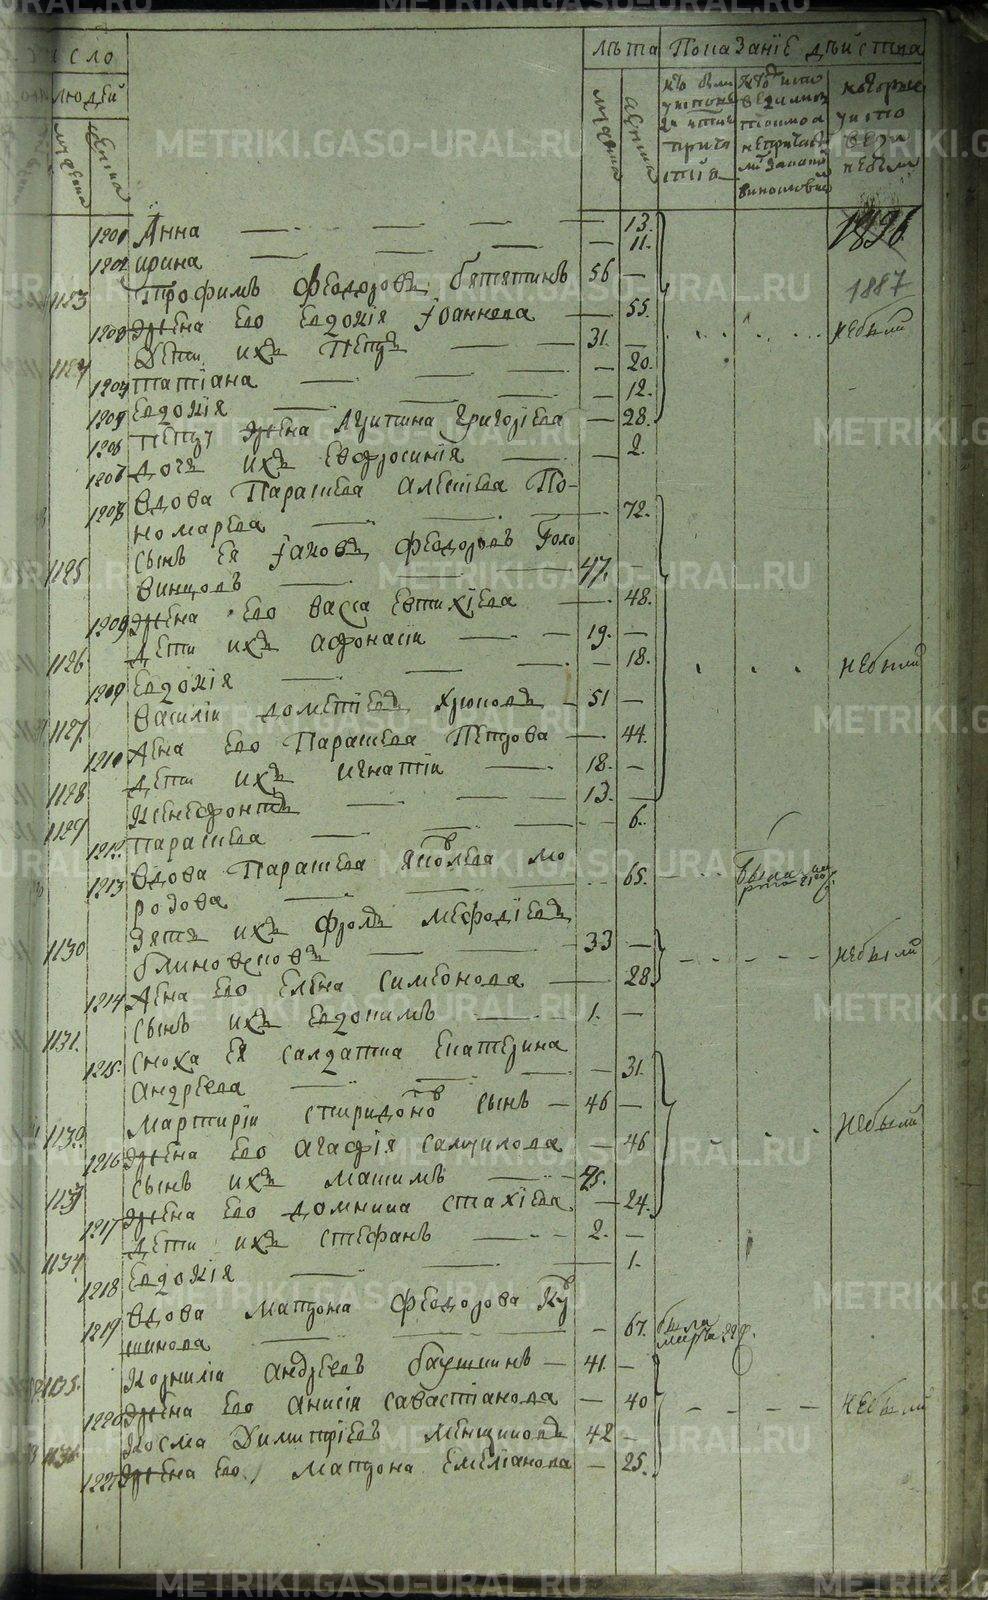 число
людей
лѣта Показанїе дѣйства
мужска женска
которые у исповеди небыли
1201 Анна 13.
1202 ирина 11.
1896
1887
1123 Трофимъ Феодоровъ 56
1203 Жена Его Евдокїя Iоаннова 55.
небыли
1124 Дети ихъ Петръ 31.
1204 татїана 20.
1205 Евдокїя 12.
1206 Петру Жена Агрипина Григорїева 28.
1207 дочь ихъ Евфросинїя 2.
1208 Вдова Параскева алексѣева По-
номарева 72.
1125 сынъ Ея Iаковъ феодоровъ Голо
винцовъ 47.
1209 Жена Его васса Евтихїева 48.
1126 дети ихъ афонасiи 19.
1209 Евдокїя 18.
небыли
1127 Василiи дометїевъ Хромовъ 51
1210 Жена Его Параскева Петрова 44.
1128 дети ихъ игнатiи 18.
1129 Ксенофонтъ 13.
1212 параскева 6.
1213 Вдова Параскева Яковлева мо
розова 65.
была марта
1130 Зять ихъ фролъ мефодїевъ
блиновсковъ 33
небыли
1214 Жена Его Елена симеонова 28.
1131. сынъ ихъ Евдокимъ 1.
1215. сноха Ея салдатка Екатерина
андреева 31.
1132 Мартирiи спиридоновъ сынъ 46
небыли
1216 Жена Его агафїя самуилова 46
1133 сынъ ихъ максимъ 25.
1217 Жена Его домника стахїева 24.
1134 дети ихъ стефанъ 2.
1218 Евдокїя 1.
1219 Вдова матрона феодорова Ку
шкова 67.
была марта 29
1135. Корнилiи андреевъ 41.
1220 Жена Его анисїя савастїанова 40
небыли
1136 Косма Димитрїевъ менщиковъ 42
1221 Жена Его матрона Емелїанова 25.
METRIKI.GASO-URAL.RU